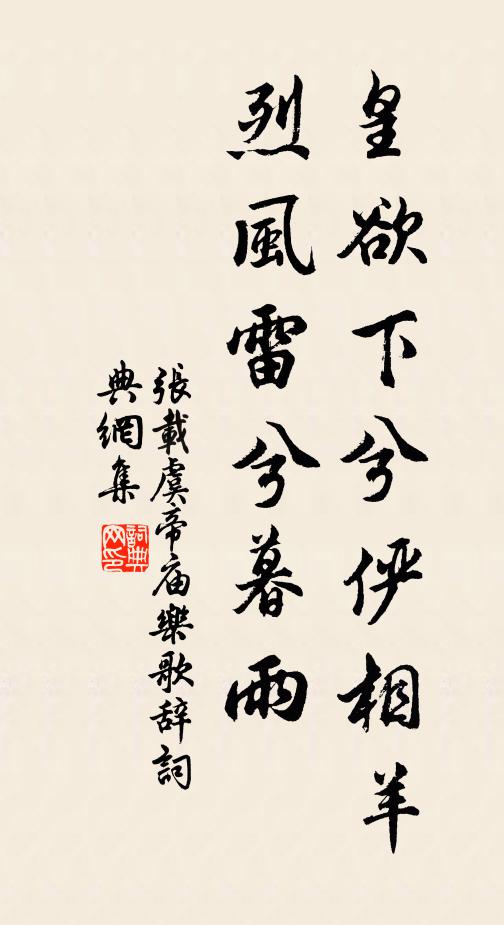 皇欲下兮俨相羊
烈風雷兮暮雨
張載虞帝庙樂歌辞詞
典網集
詞典网印